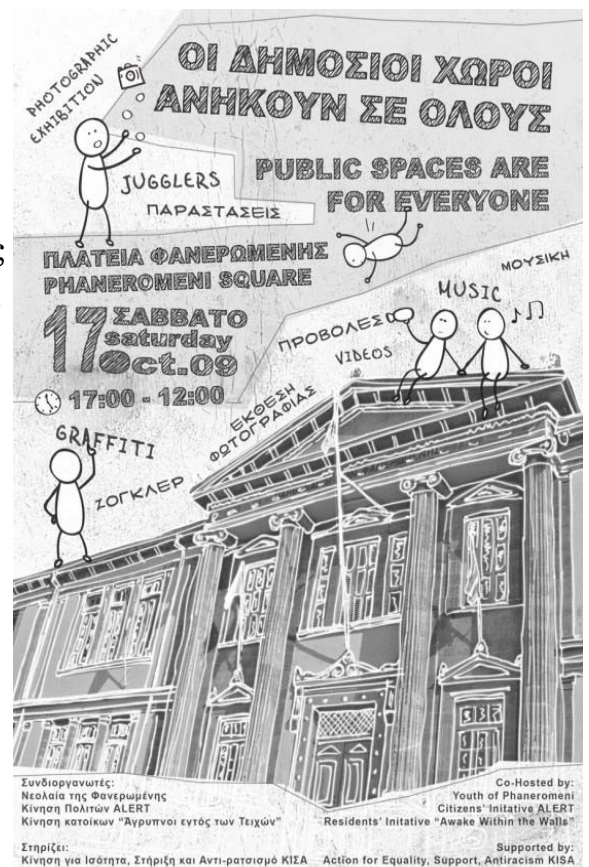 PHOTOGRAPHIC
EXHIBITION
ΟΙ ΔΗΜΟΣΙΟΙ ΧΩΡΟΙ
ΑΝΗΚΟΥΝ ΣΕ ΟΛΟΥΣ
PUBLIC SPACES ARE
FOR EVERYONE
JUGGLERS
ΠΑΡΑΣΤΑΣΕΙΣ
ς
ΠΛΑΤΕΙΑ ΦΑΝΕΡΩΜΕΝΗΣ
PHANEROMENI SQUARE
17 ΣΑΒΒΑΤΟ
saturday
Oct.09
17:00 - 12:00
ΜΟΥΣΙΚΗ
MUSIC
ΠΡΟΒΟΛΕΣ
VIDEOS
ΕΚΘΕΣΗ
ΦΩΤΟΓΡΑΦΙΑΣ
GRAFFITI
ΖΟΓΚΛΕΡ
Συνδιοργανωτές:
Νεολαία της Φανερωμένης
Κίνηση Πολιτών ALERT
Κίνηση κατοίκων “Άγρυπνοι εντός των Τειχών”
Στηρίζει:
Κίνηση για Ισότητα, Στήριξη και Αντι-ρατσισμό ΚΙΣΑ
Co-Hosted by:
Youth of Phaneromeni
Citizens' Initative ALERT
Residents' Initative “Awake Within the Walls”
Supported by:
Action for Equality, Support, Antiracism KISA